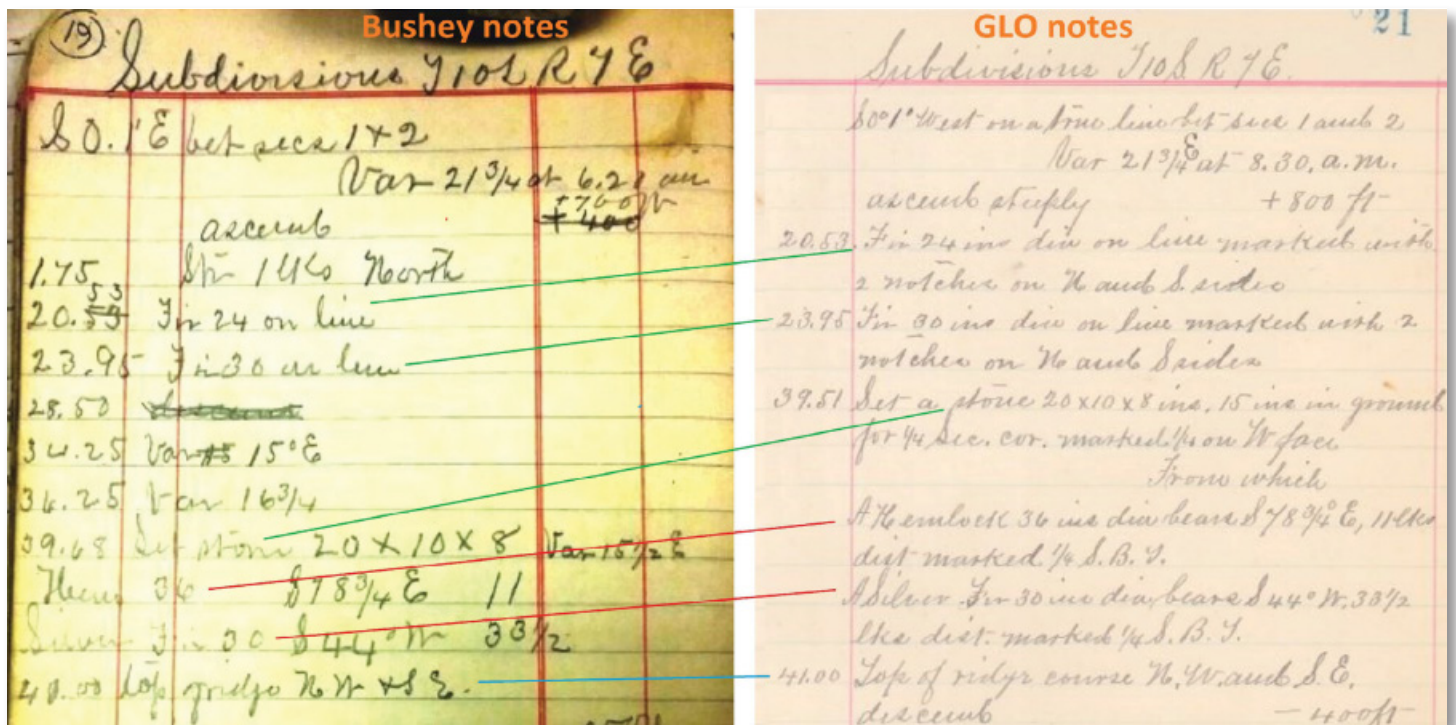 Bushey notes
19
Subdivisions T10S R7E
S0.1'E bet secs 1+2
Var 21 3/4 at 6.21 am
+700 ft
+ 400
ascend
1.75 Str 1 lks North
53
20.53 Fir 24 on line
23.95 Fir 30 on line
28.50 descend
34.25 Var 15°E
36.25 Var 16 3/4
39.68 Set stone 20 x 10 x 8 Var 15 1/2 E
Hem 36 S78 3/4 E 11
Silver Fir 30 S44°W 33 1/2
41.00 top ridge N W + S E.
GLO notes
21
Subdivisions T10S. R7E.
S0°1' West on a true line bet secs 1 and 2
Var 21 3/4 E at 8.30. a.m.
ascend steeply +800 ft
20.53 Fir 24 ins dia on line marked with
2 notches on N and S. sides
23.95 Fir 30 ins dia on line marked with 2
notches on N and S sides
39.51 Set a stone 20 x 10 x 8 ins. 15 ins in ground
for 1/4 Sec. cor. marked 1/4 on W face
From which
A Hemlock 36 ins dia bears S78 3/4° E, 11 lks
dist marked 1/4 S. B. T.
A Silver Fir 30 ins dia, bears S 44° W. 33 1/2
lks dist. marked 1/4 S. B. T.
41.00 Top of ridge course N. W. and S. E.
descend - 400 ft